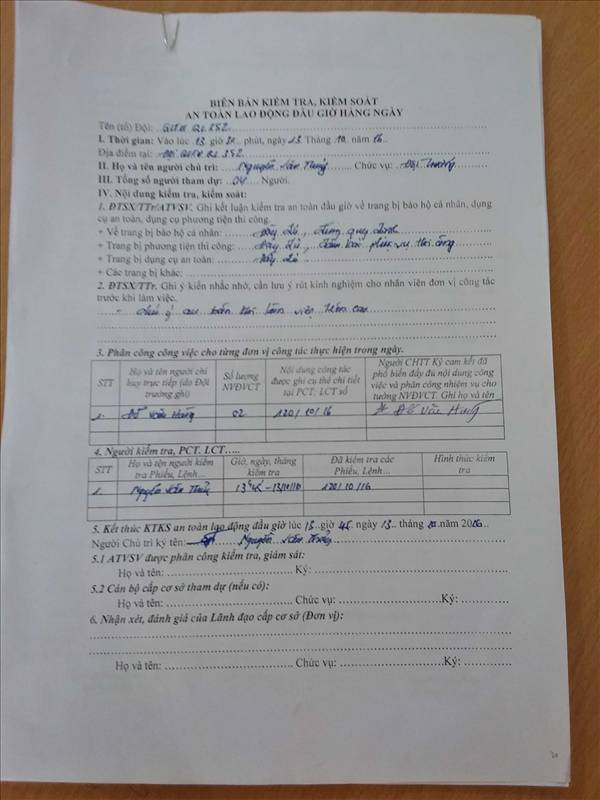 BIÊN BẢN KIỂM TRA, KIỂM SOÁT
AN TOÀN LAO ĐỘNG ĐẦU GIỜ HÀNG NGÀY
Tên (tổ) Đội:
I. Thời gian: Vào lúc 13 giờ 30 phút, ngày 13 Tháng 10 năm 16
Địa điểm tại:
II. Họ và tên người chủ trì: Nguyễn Văn Chức vụ: Đội trưởng
III. Tổng số người tham dự: 04 Người.
IV. Nội dung kiểm tra, kiểm soát:
1. ĐTSX/TTr/ATVSV. Ghi kết luận kiểm tra an toàn đầu giờ về trang bị bảo hộ cá nhân, dụng
cụ an toàn, dụng cụ phương tiện thi công.
+ Về trang bị bảo hộ cá nhân: đầy đủ, đúng quy định
+ Trang bị phương tiện thi công: đầy đủ, đảm bảo phục vụ thi công
+ Trang bị dụng cụ an toàn: đầy đủ
+ Các trang bị khác:
2. ĐTSX/TTr. Ghi ý kiến nhắc nhở, cần lưu ý rút kinh nghiệm cho nhân viên đơn vị công tác
trước khi làm việc.
- chú ý an toàn khi làm việc trên cao
3. Phân công công việc cho từng đơn vị công tác thực hiện trong ngày.
STT Họ và tên người chỉ huy trực tiếp (do Đội trưởng ghi) Số lượng NVĐVCT Nội dung công tác được ghi cụ thể chi tiết tại PCT, LCT số Người CHTT Ký cam kết đã phổ biến đầy đủ nội dung công việc và phân công nhiệm vụ cho từng NVĐVCT. Ghi họ và tên
1. Đỗ Văn Hưng 02 120/10/16 Đỗ Văn Hưng
4. Người kiểm tra, PCT, LCT…..
STT Họ và tên người kiểm tra Phiếu, Lệnh… Giờ, ngày, tháng kiểm tra Đã kiểm tra các Phiếu, Lệnh… Hình thức kiểm tra
1. Nguyễn Văn 13h45 - 13/10/16 120/10/16
5. Kết thúc KTKS an toàn lao động đầu giờ lúc 13 giờ 45 ngày 13 tháng 10 năm 2016
Người Chủ trì ký tên: Nguyễn Văn
5.1 ATVSV được phân công kiểm tra, giám sát:
Họ và tên: Ký:
5.2 Cán bộ cấp cơ sở tham dự (nếu có):
Họ và tên: Chức vụ: Ký:
6. Nhận xét, đánh giá của Lãnh đạo cấp cơ sở (Đơn vị):
Họ và tên: Chức vụ: Ký: